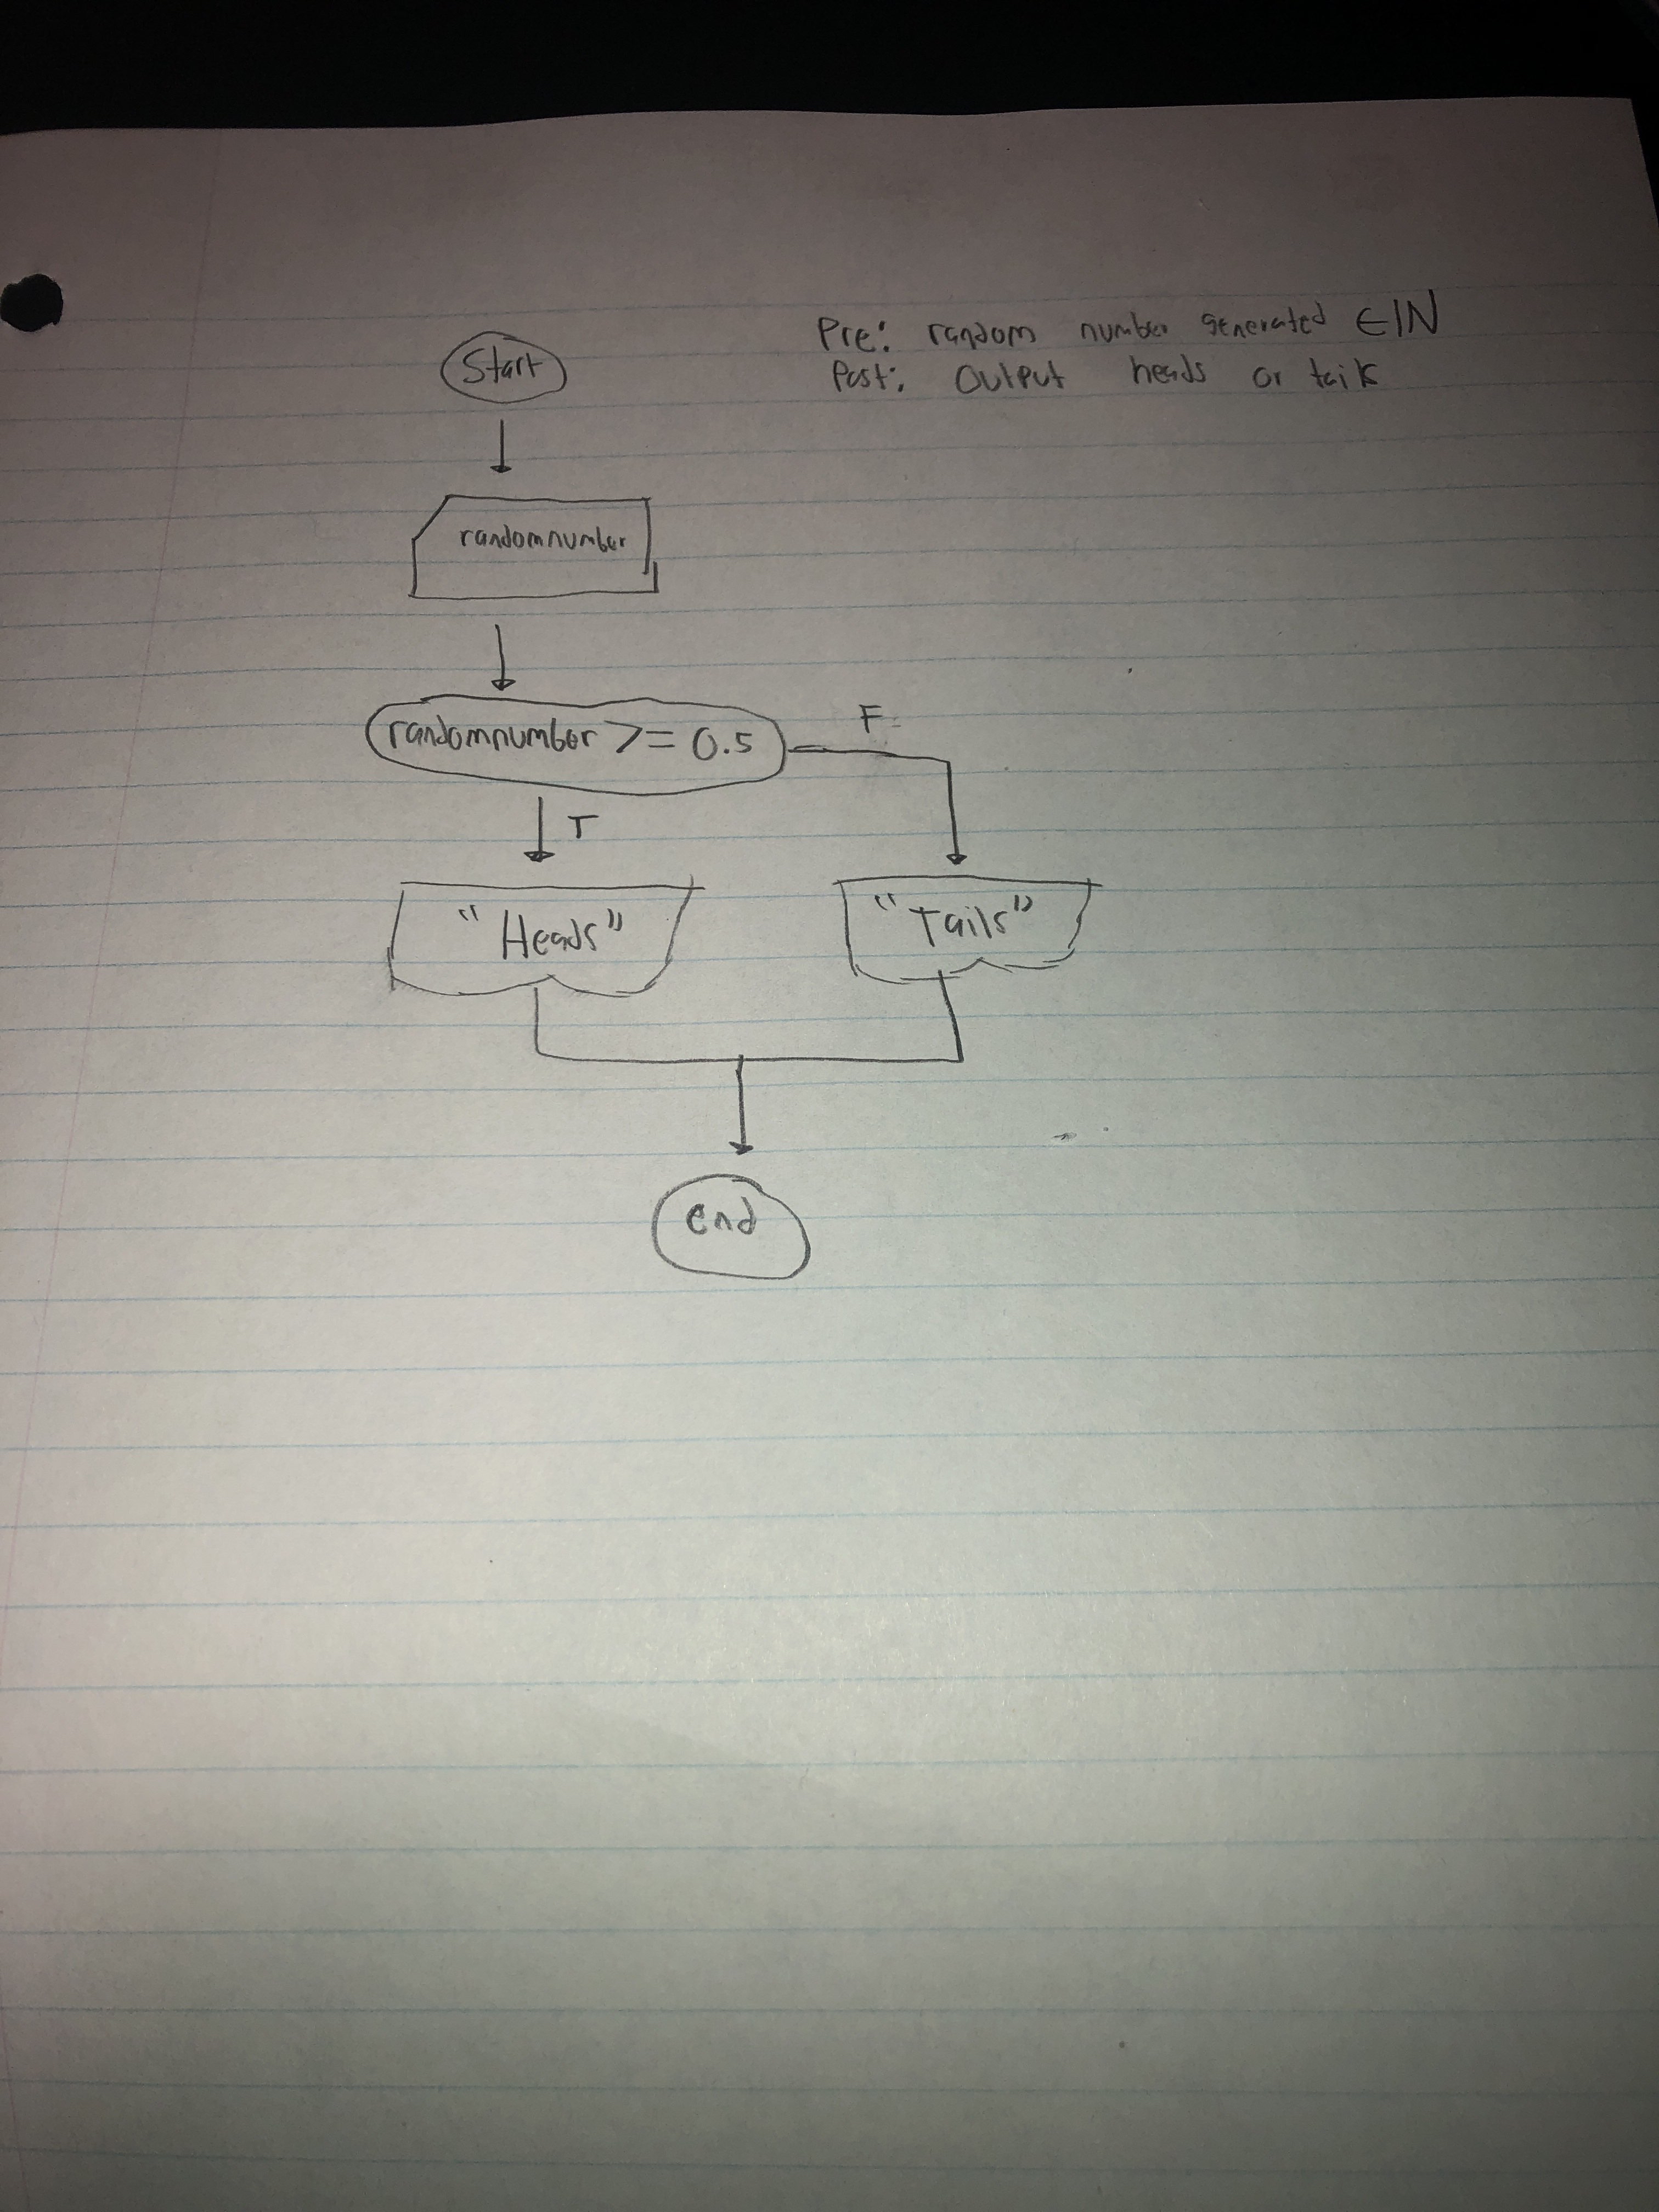 Pre: random number generated ∈ℕ
Post: output heads or tails
Start
randomnumber
randomnumber >= 0.5
F
T
"Heads"
"Tails"
end